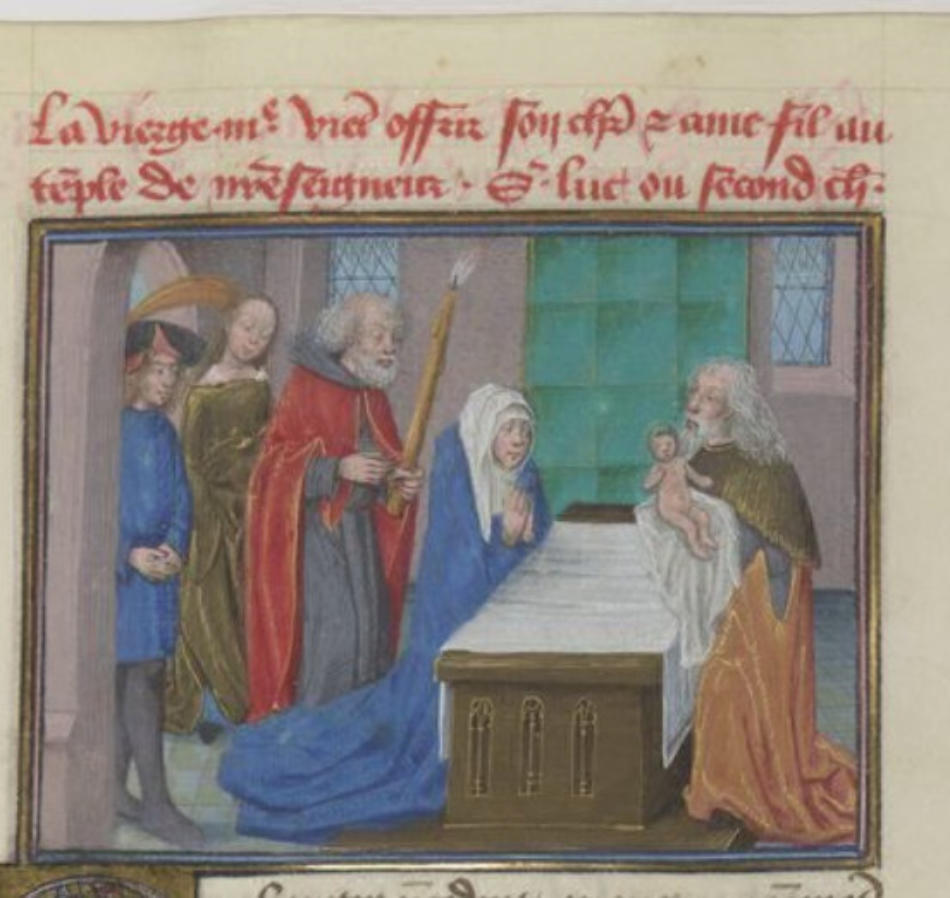 La vierge m^e vie͞t offrir son ch͞r ⁊ ame fil au
te͞ple de n͞reseigneur · S^t luc ou second ch͞ ·